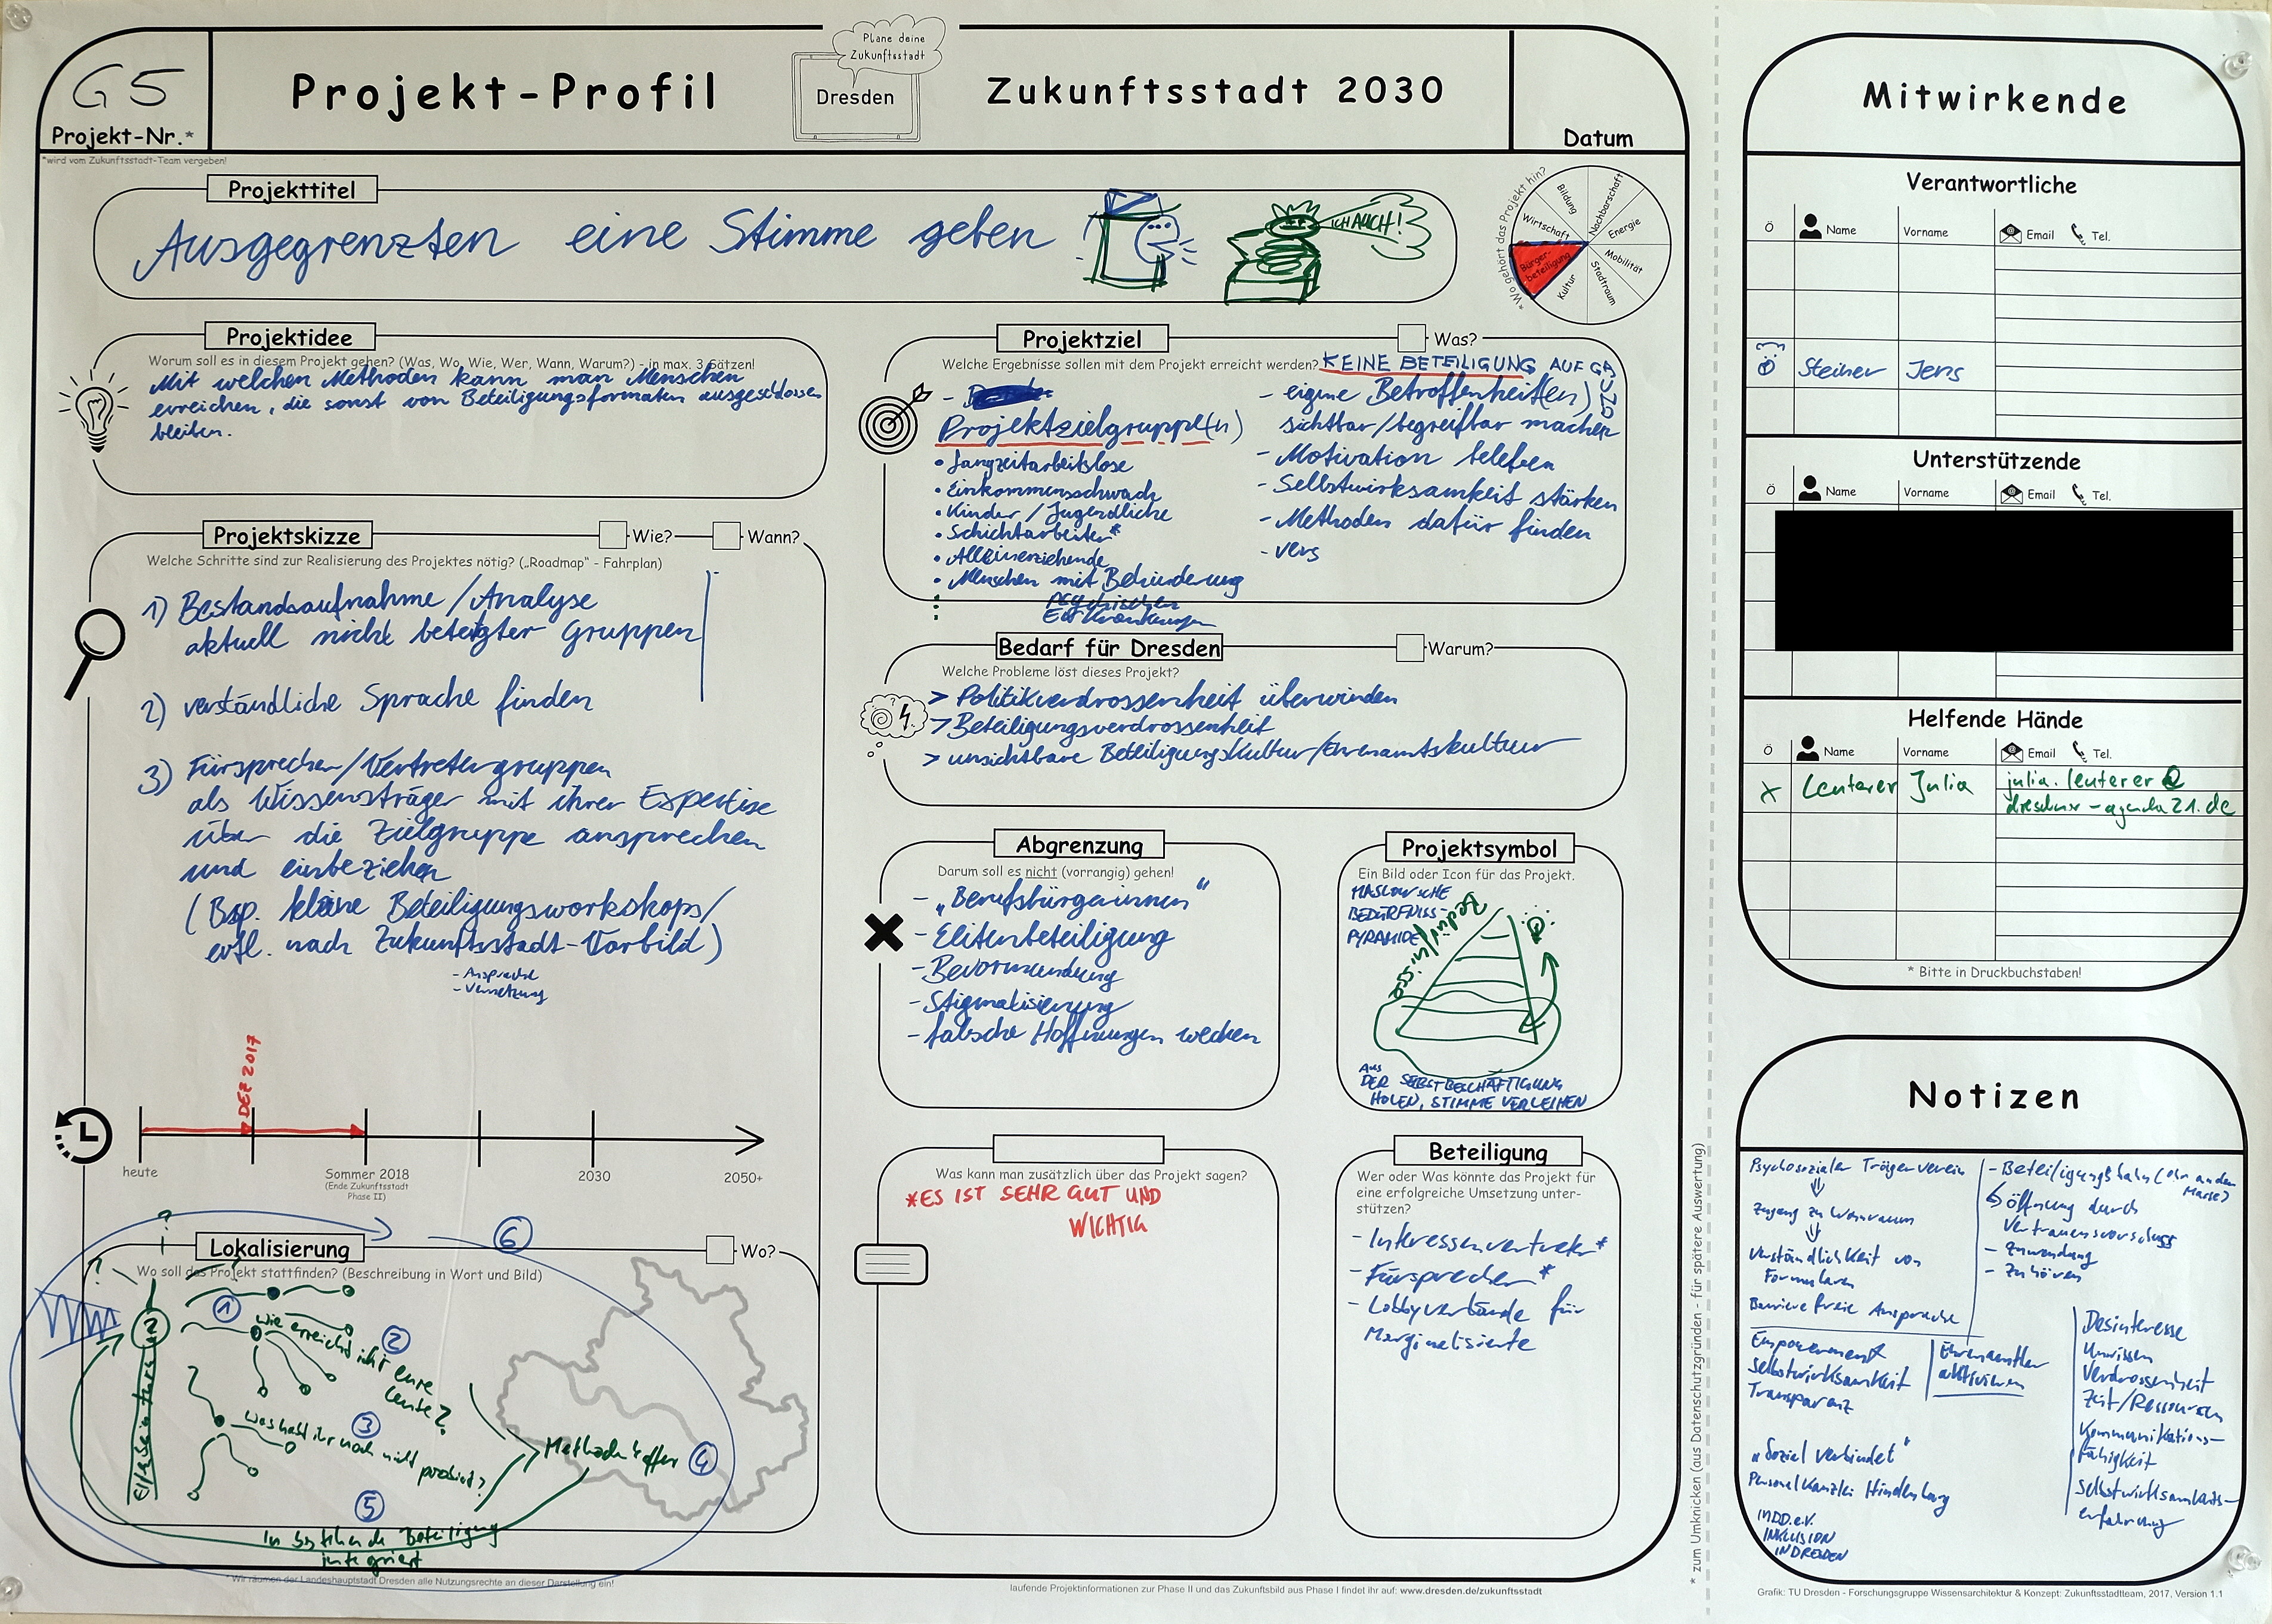 G5
Projekt-Nr.*
*wird vom Zukunftsstadt-Team vergeben!
Projekt-Profil
Plane deine
Zukunftsstadt
Dresden
Zukunftsstadt 2030
Datum
Projekttitel
Ausgegrenzten eine Stimme geben
ICH AUCH!
*Wo gehört das Projekt hin?
Bildung
Nachbarschaft
Wirtschaft
Energie
Bürger-
beteiligung
Mobilität
Kultur
Stadtraum
Projektidee
Worum soll es in diesem Projekt gehen? (Was, Wo, Wie, Wer, Wann, Warum?) - in max. 3 Sätzen!
Mit welchen Methoden kann man Menschen
erreichen, die sonst von Beteiligungsformaten ausgeschlossen
bleiben.
Projektskizze
Wie?
Wann?
Welche Schritte sind zur Realisierung des Projektes nötig? („Roadmap" - Fahrplan)
1) Bestandsaufnahme / Analyse
aktuell nicht beteiligter Gruppen
2) verständliche Sprache finden
3) Fürsprecher/Vertretergruppen
als Wissensträger mit ihrer Expertise
über die Zielgruppe ansprechen
und einbeziehen
(Bsp. kleine Beteiligungsworkshops/
evtl. nach Zukunftsstadt-Vorbild)
- Ansprache
- Vernetzung
DEZ 2017
heute
Sommer 2018
(Ende Zukunftsstadt
Phase II)
2030
2050+
Lokalisierung
Wo?
Wo soll das Projekt stattfinden? (Beschreibung in Wort und Bild)
1
wie erreicht ihr eure
Leute?
2
3
was habt ihr noch nicht probiert?
Methodenkoffer
4
5
6
in bestehende Beteiligung
integriert
*Wir räumen der Landeshauptstadt Dresden alle Nutzungsrechte an dieser Darstellung ein!
Projektziel
Was?
Welche Ergebnisse sollen mit dem Projekt erreicht werden?
KEINE BETEILIGUNG AUF
Projektzielgruppe(n)
• Langzeitarbeitslose
• Einkommensschwach
• Kinder / Jugendliche
• Schichtarbeiter*
• Alleinerziehende
• Menschen mit Behinderung
psychischen
Erkrankungen
- eigene Betroffenheit(en)
sichtbar/begreifbar machen
- Motivation beleben
- Selbstwirksamkeit stärken
- Methoden dafür finden
- vers
Bedarf für Dresden
Warum?
Welche Probleme löst dieses Projekt?
> Politikverdrossenheit überwinden
> Beteiligungsverdrossenheit
> unsichtbare Beteiligungskultur/Ehrenamtskultur
Abgrenzung
Darum soll es nicht (vorrangig) gehen!
- „Berufsbürgerinnen"
- Elitenbeteiligung
- Bevormundung
- Stigmatisierung
- falsche Hoffnungen wecken
Projektsymbol
Ein Bild oder Icon für das Projekt.
MASLOWSCHE
BEDÜRFNISS-
PYRAMIDE
Bedürfnisse
AUS
DER SELBSTBESCHÄFTIGUNG
HOLEN, STIMME VERLEIHEN
Was kann man zusätzlich über das Projekt sagen?
*ES IST SEHR GUT UND
WICHTIG
Beteiligung
Wer oder Was könnte das Projekt für
eine erfolgreiche Umsetzung unter-
stützen?
- Interessenvertreter*
- Fürsprecher*
- Lobbyverbände für
Marginalisierte
laufende Projektinformationen zur Phase II und das Zukunftsbild aus Phase I findet ihr auf: www.dresden.de/zukunftsstadt
* zum Umknicken (aus Datenschutzgründen - für spätere Auswertung)
Mitwirkende
Verantwortliche
Ö Name Vorname Email Tel.
Steiner Jens
Unterstützende
Ö Name Vorname Email Tel.
Helfende Hände
Ö Name Vorname Email Tel.
x Leuterer Julia julia.leuterer@
dresdner-agenda21.de
* Bitte in Druckbuchstaben!
Notizen
Psychosozialer Trägerverein
Zugang zu Wohnraum
Verständlichkeit von
Formularen
Barrierefreie Ansprache
- Beteiligungsbahn (Ohr an der
Masse)
Öffnung durch
Vertrauensvorschuss
- Zuwendung
- Zuhören
Empowerment
Selbstwirksamkeit
Transparenz
Ehrenämtler
aktivieren
Desinteresse
Unwissen
Verdrossenheit
Zeit/Ressourcen
Kommunikations-
fähigkeit
Selbstwirksamkeits-
erfahrung
„Sozial verbindet"
Personalkanzlei Hindenburg
INDD.e.V.
INKLUSION
IN DRESDEN
Grafik: TU Dresden - Forschungsgruppe Wissensarchitektur & Konzept: Zukunftsstadtteam, 2017, Version 1.1